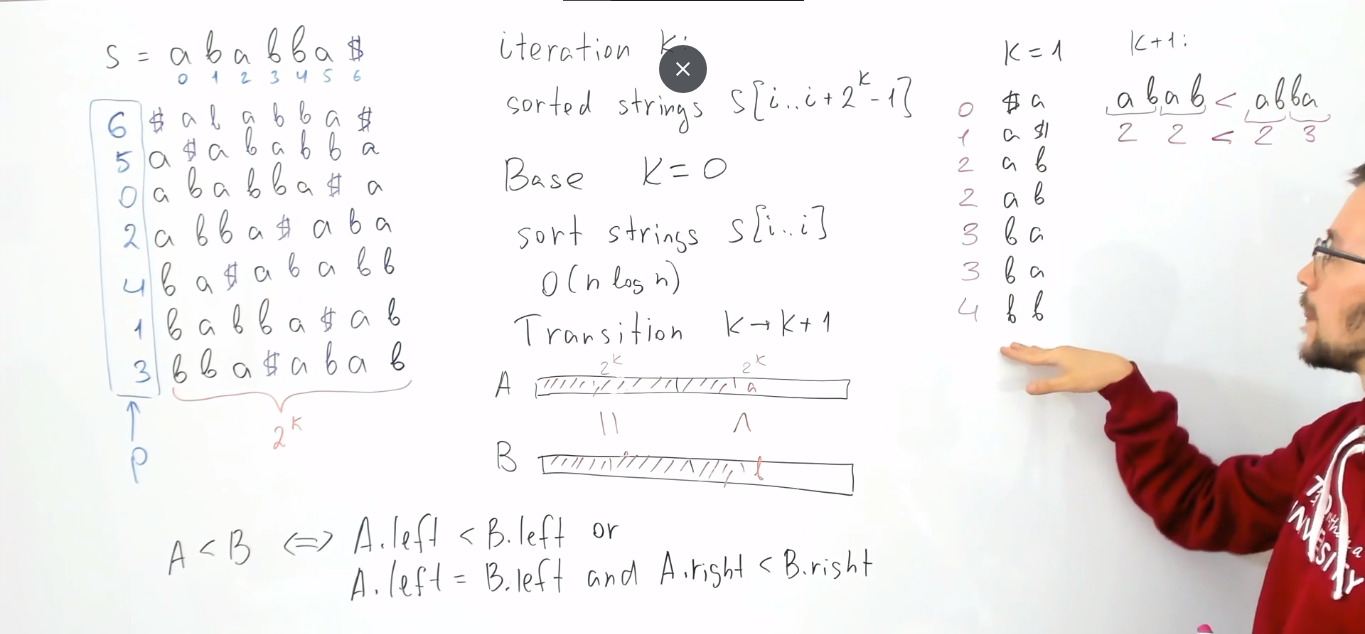 S = a b a b b a $
0 1 2 3 4 5 6
6 $ a b a b b a $
5 a $ a b a b b a
0 a b a b b a $ a
2 a b b a $ a b a
4 b a $ a b a b b
1 b a b b a $ a b
3 b b a $ a b a b
p
2^k
iteration k:
sorted strings S[i..i+2^k-1]
Base k=0
sort strings S[i..i]
O(n log n)
Transition k→k+1
2^k 2^k
A a
|| ∧
B b
A < B ⇔ A.left < B.left or
A.left = B.left and A.right < B.right
k=1
0 $ a
1 a $
2 a b
2 a b
3 b a
3 b a
4 b b
k+1:
a b a b < a b b a
2 2 < 2 3